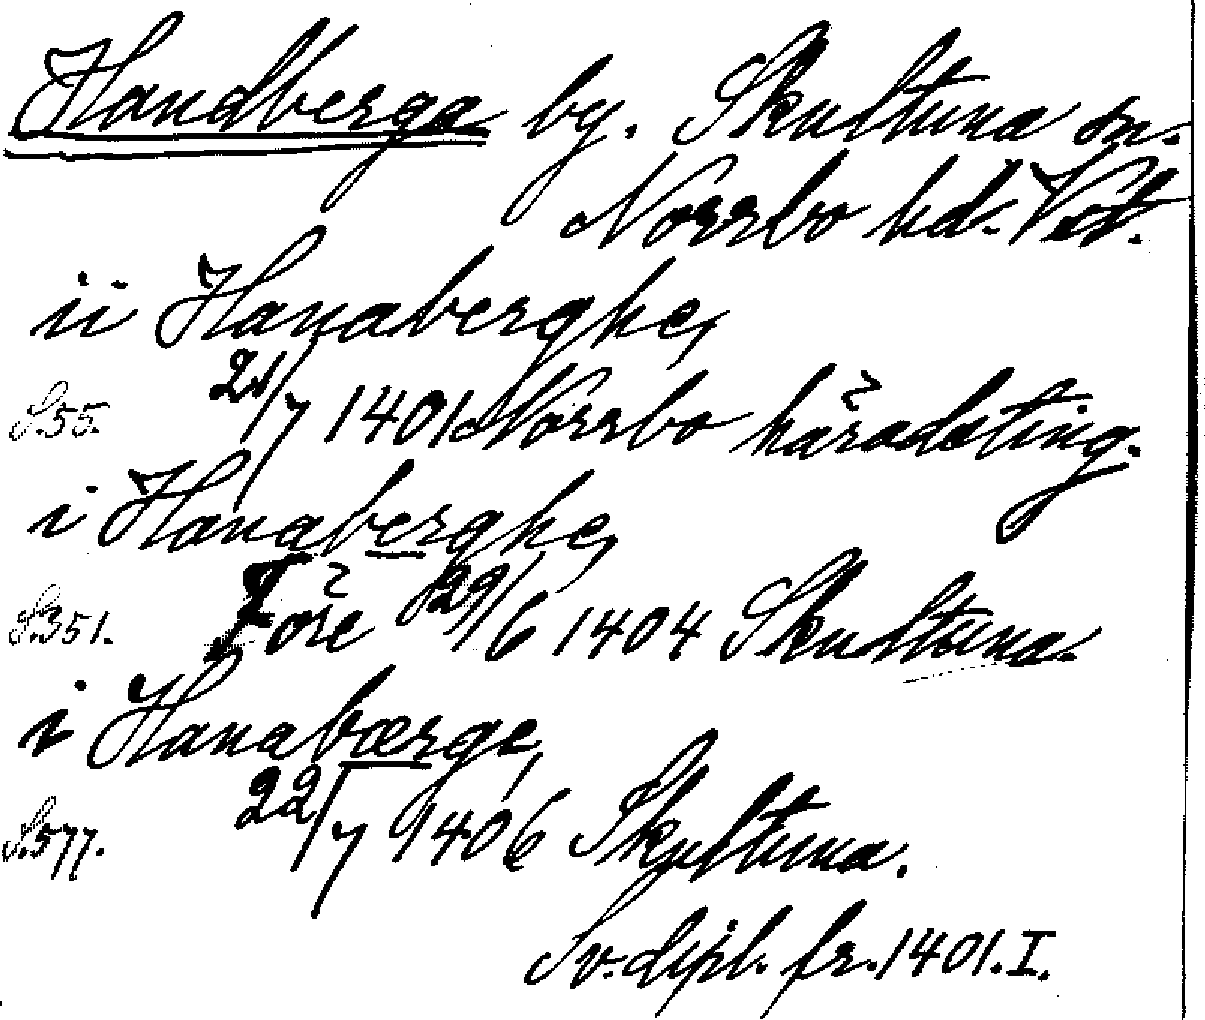 Handberga by. Skultuna sn.
Norrbo hd. Vstl.
ii Hanaberghe,
S.55. 21/7 1401 Norrbo häradsting.
i Hanaberghe,
S.351. Före 29/6 1404 Skultuna.
i Hanabærge,
S.577. 22/7 1406 Skultuna.
Sv. dipl. fr. 1401. I.